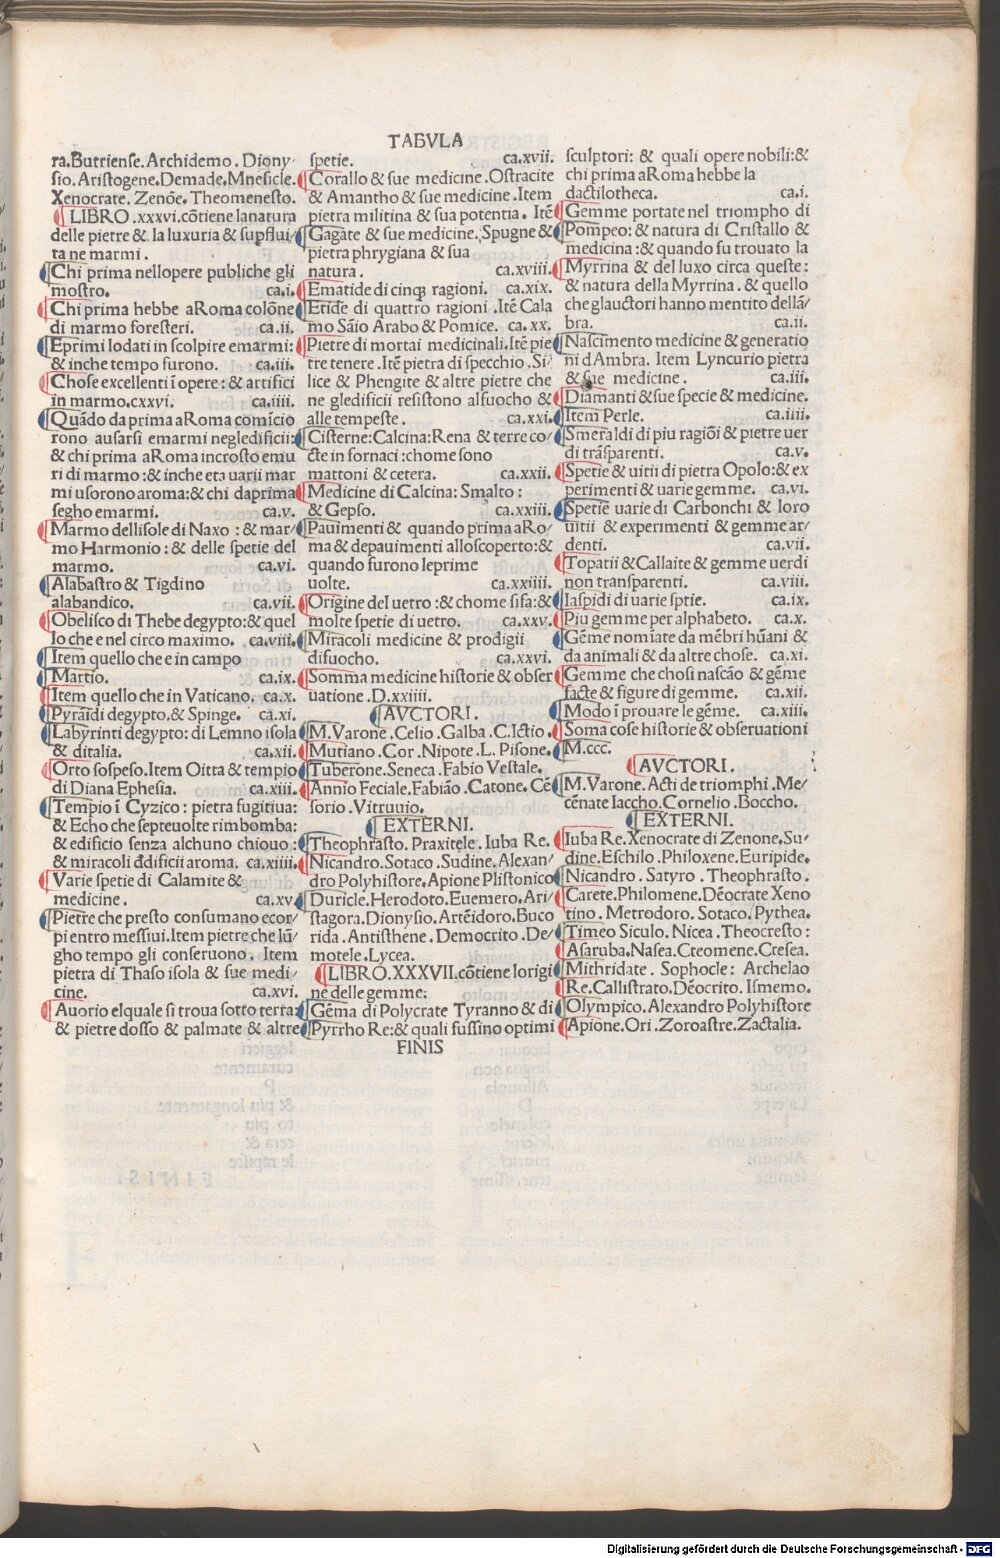 TABVLA
ra.Butriense.Archidemo.Diony/
sio.Aristogene.Demade.Mnesicle.
Xenocrate.Zenõe.Theomenesto.
LIBRO.xxxvi.cõtiene lanatura
delle pietre & la luxuria & supflui/
ta ne marmi.
Chi prima nellopere publiche gli
mostro. ca.i.
Chi prima hebbe aRoma colõne
di marmo foresteri. ca.ii.
Eprimi lodati in scolpire emarmi:
& inche tempo furono. ca.iii.
Chose excellenti ĩ opere:& artifici
in marmo.cxxvi. ca.iiii.
Quãdo da prima aRoma comĩcio
rono ausarsi emarmi negledificii:
& chi prima aRoma incrosto emu
ri di marmo:& inche eta uarii mar
mi usorono aroma:& chi daprima
segho emarmi. ca.v.
Marmo dellisole di Naxo:& mar/
mo Harmonio:& delle spetie del
marmo. ca.vi.
Alabastro & Tigdino
alabandico. ca.vii.
Obelisco di Thebe degypto:& quel
lo che e nel circo maximo. ca.viii.
Item quello che e in campo
Martio. ca.ix.
Item quello che in Vaticano. ca.x.
Pyraĩdi degypto.& Spinge. ca.xi.
Labyrinti degypto:di Lemno isola
& ditalia. ca.xii.
Orto sospeso.Item Oitta & tempio
di Diana Ephesia. ca.xiii.
Tempio ĩ Cyzico:pietra fugitiua:
& Echo che septeuolte rimbomba:
& edificio senza alchuno chiouo:
& miracoli đdificii aroma. ca.xiiii.
Varie spetie di Calamite &
medicine. ca.xv.
Pietre che presto consumano ecor/
pi entro messiui.Item pietre che lũ/
gho tempo gli conseruono. Item
pietra di Thaso isola & sue medi/
cine. ca.xvi.
Auorio elquale si troua sotto terra:
& pietre dosso & palmate & altre
spetie. ca.xvii.
Corallo & sue medicine.Ostracite
& Amantho & sue medicine.Item
pietra militina & sua potentia. Itẽ
Gagate & sue medicine.Spugne &
pietra phrygiana & sua
natura. ca.xviii.
Ematide di cinqꝫ ragioni. ca.xix.
Etide di quattro ragioni.Itẽ Cala
mo Sãio Arabo & Pomice. ca.xx.
Pietre di mortai medicinali.Itẽ pie
tre tenere.Itẽ pietra di specchio.Si/
lice & Phengite & altre pietre che
ne gledificii resistono alfuocho &
alle tempeste. ca.xxi.
Cisterne:Calcina:Rena & terre co/
cte in fornaci:chome sono
mattoni & cetera. ca.xxii.
Medicine di Calcina:Smalto:
& Gepso. ca.xxiii.
Pauimenti & quando prima aRo/
ma & depauimenti alloscoperto:&
quando furono leprime
uolte. ca.xxiiii.
Origine del uetro:& chome sifa:&
molte spetie di uetro. ca.xxv.
Miracoli medicine & prodigii
difuocho. ca.xxvi.
Somma medicine historie & obser
uatione.D.xxiiii.
AVCTORI.
M.Varone.Celio.Galba.C.Ictio.
Mutiano.Cor.Nipote.L.Pisone.
Tuberone.Seneca.Fabio Vestale.
Annio Feciale.Fabião.Catone.Cẽ
sorio.Vitruuio.
EXTERNI.
Theophrasto.Praxitele.Iuba Re.
Nicandro.Sotaco.Sudine.Alexan/
dro Polyhistore.Apione Plistonico
Duricle.Herodoto.Euemero.Ari/
stagora.Dionysio.Artẽidoro.Buco
rida.Antisthene.Democrito.De/
motele.Lycea.
LIBRO.XXXVII.cõtiene lorigi
ne delle gemme:
Gẽma di Polycrate Tyranno & di
Pyrrho Re:& quali fussino optimi
sculptori: & quali opere nobili:&
chi prima aRoma hebbe la
dactilotheca. ca.i.
Gemme portate nel triompho di
Pompeo:& natura di Cristallo &
medicina:& quando fu trouato la
Myrrina & del luxo circa queste:
& natura della Myrrina.& quello
che glauctori hanno mentito dellã/
bra. ca.ii.
Nascimento medicine & generatio
ni dAmbra. Item Lyncurio pietra
& sue medicine. ca.iii.
Diamanti & sue specie & medicine.
Item Perle. ca.iiii.
Smeraldi di piu ragiõi & pietre uer
di trãsparenti. ca.v.
Spetie & uitii di pietra Opolo:& ex
perimenti & uarie gemme. ca.vi.
Spetie uarie di Carbonchi & loro
uitii & experimenti & gemme ar/
denti. ca.vii.
Topatii & Callaite & gemme uerdi
non transparenti. ca.viii.
Iaspidi di uarie sptie. ca.ix.
Piu gemme per alphabeto. ca.x.
Gẽme nomĩate da mẽbri hũani &
da animali & da altre chose. ca.xi.
Gemme che chosi nascão & gẽme
facte & figure di gemme. ca.xii.
Modo ĩ prouare le gẽme. ca.xiii.
Soma cose historie & obseruationi
M.ccc.
AVCTORI.
M.Varone. Acti de triomphi.Me/
cẽnate Iaccho.Cornelio.Boccho.
EXTERNI.
Iuba Re.Xenocrate di Zenone.Su/
dine.Eschilo.Philoxene.Euripide.
Nicandro. Satyro. Theophrasto.
Carete.Philomene.Dẽocrate Xeno
tino. Metrodoro.Sotaco.Pythea.
Timeo Siculo. Nicea.Theocresto:
Asaruba.Nasea.Cteomene.Ctesea.
Mithridate. Sophocle: Archelao
Re.Callistrato.Dẽocrito.Ismemo.
Olympico.Alexandro Polyhistore
Apione.Ori.Zoroastre.Zactalia.
FINIS
Digitalisierung gefördert durch die Deutsche Forschungsgemeinschaft - DFG